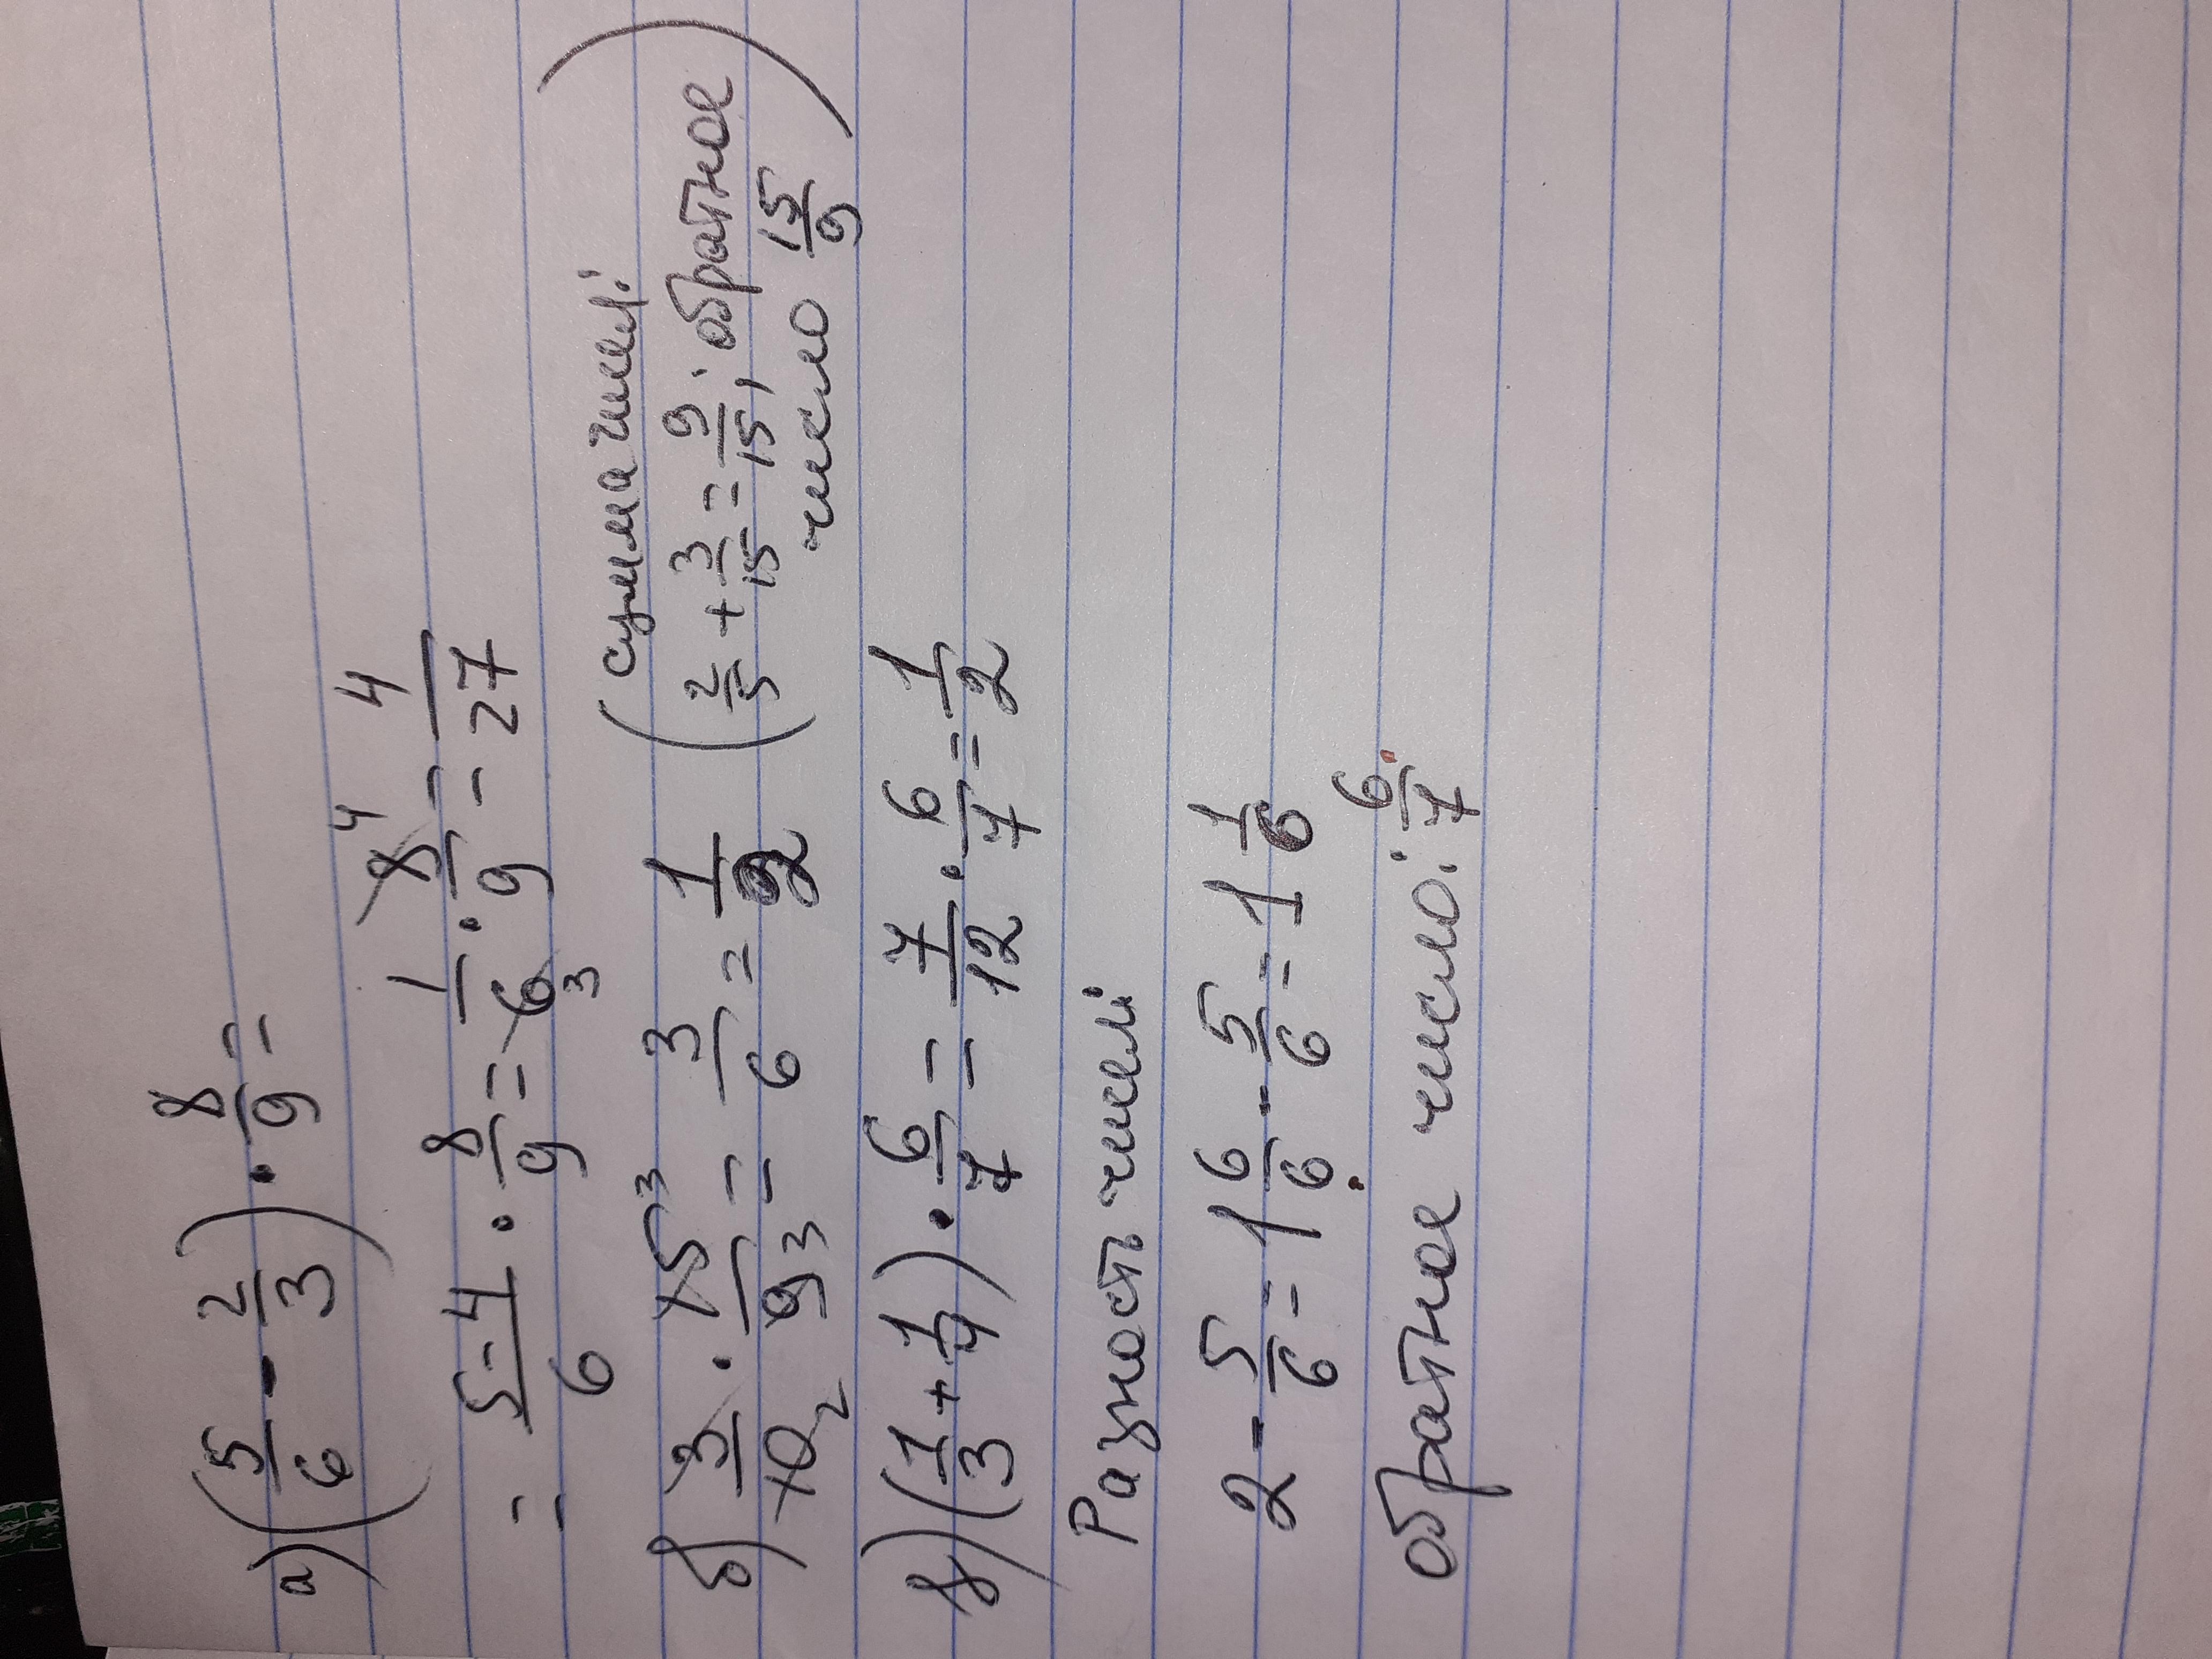 а) (5/6 - 2/3) · 8/9 =
= 5-4/6 · 8/9 = 1/6 3 · 8/9 4 = 4/27
б) 3/10 2 · 15 3/9 3 = 3/6 = 1/2 (сумма чисел:
2/5 + 3/15 = 9/15; обратное
число 15/9)
в) (1/3 + 1/4) · 6/7 = 7/12 · 6/7 = 1/2
Разность чисел:
2 - 5/6 = 1 6/6 - 5/6 = 1 1/6
обратное число: 6/7